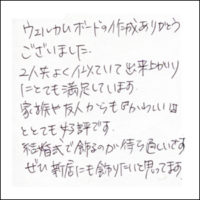 ウェルカムボードの作成ありがとう
ございました。
2人共よく似ていて出来上がり
にとても満足しています。
家族や友人からもかわいい
ととても好評です。
結婚式で飾るのが待ち遠しいです
ぜひ新居にも飾りたいと思ってます。